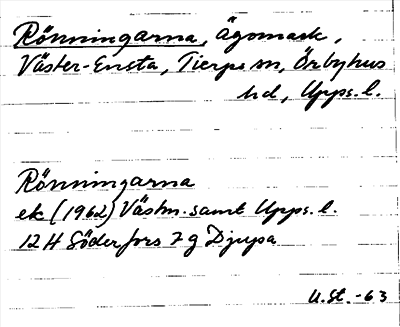 Rönningarna, Ägomark,
Väster-Ensta, Tierps sn, Örbyhus
hd, Upps. l.
Rönningarna
ek (1962) Västm. samt Upps. l.
12 H Söderfors 7 g Djupa
U.St. -63